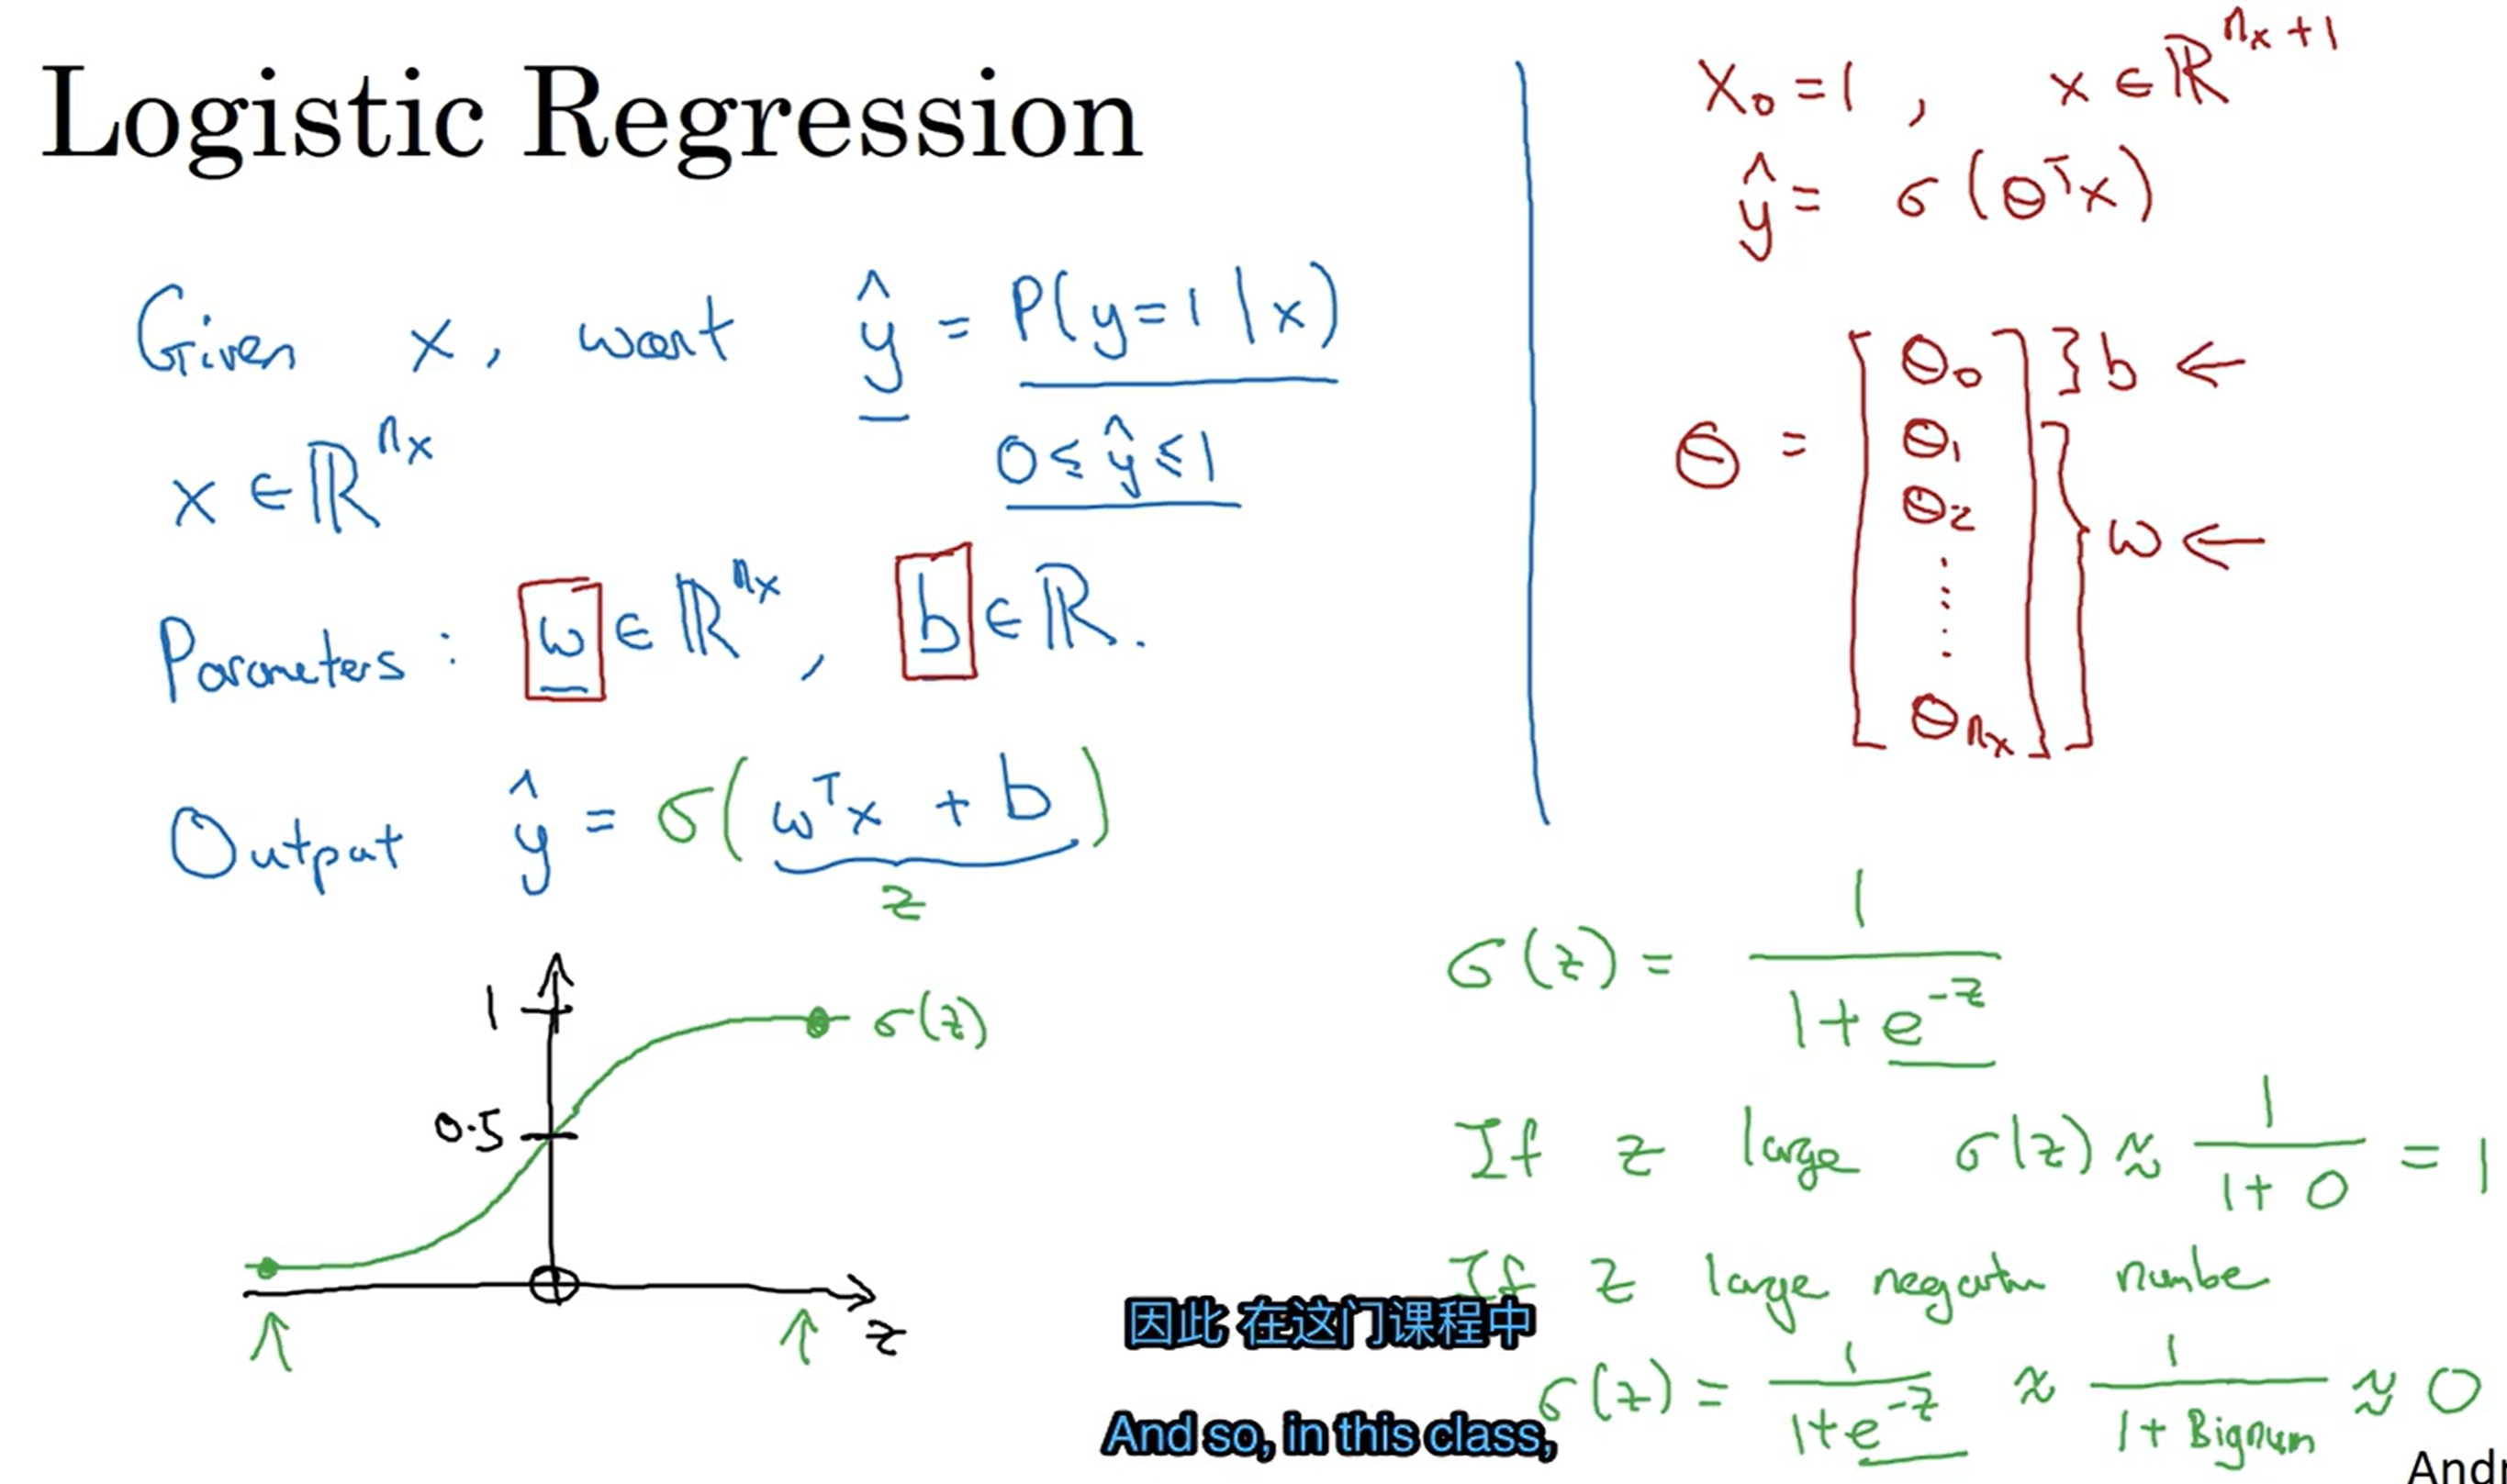 Logistic Regression
Given x, want ŷ = P(y=1|x)
x ∈ ℝ^{n_x}
0 ≤ ŷ ≤ 1
Parameters: w ∈ ℝ^{n_x}, b ∈ ℝ.
Output ŷ = σ(w^T x + b)
z
1
σ(z)
0.5
z
x_0 = 1, x ∈ ℝ^{n_x+1}
ŷ = σ(θ^T x)
θ = [θ_0 θ_1 θ_2 ⋮ θ_{n_x}]
} b ←
} w ←
σ(z) = 1/(1+e^{-z})
If z large σ(z) ≈ 1/(1+0) = 1
If z large negative numbe
σ(z) = 1/(1+e^{-z}) ≈ 1/(1+Bignum) ≈ 0
因此 在这门课程中
And so, in this class,
Andr